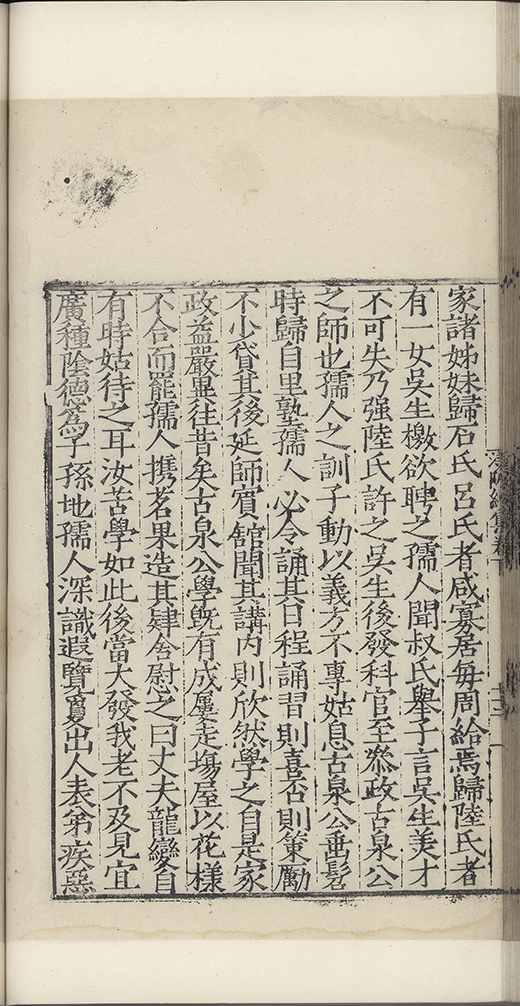 家諸姊妹歸石氏呂氏者咸寡居每周給焉歸陸氏者
有一女吳生檄欲聘之孺人聞叔氏舉子言吳生美才
不可失乃强陸氏許之吳生後發科官至叅政古泉公
之師也孺人之訓子動以義方不專姑息古泉公垂髫
時歸自里塾孺人必令誦其日程誦習則喜否則策勵
不少貸其後延師賓舘聞其講内則欣然學之自是家
政益嚴異往昔矣古泉公學旣有成屢走塲屋以花樣
不合而罷孺人携茗果造其肄舍慰之曰丈夫龍變自
有時姑待之耳汝苦學如此後當大發我老不及見宜
廣種陰德爲子孫地孺人深識遐覽夐出人表弟疾惡